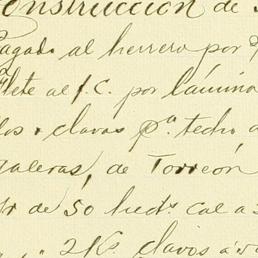 onstruccion de
Pagado al herrero por
Flete al f. C. por lámina
los y clavos pª. techo
galeras, de Torreón
de 50 hects. cal a
2 Ks. clavos á